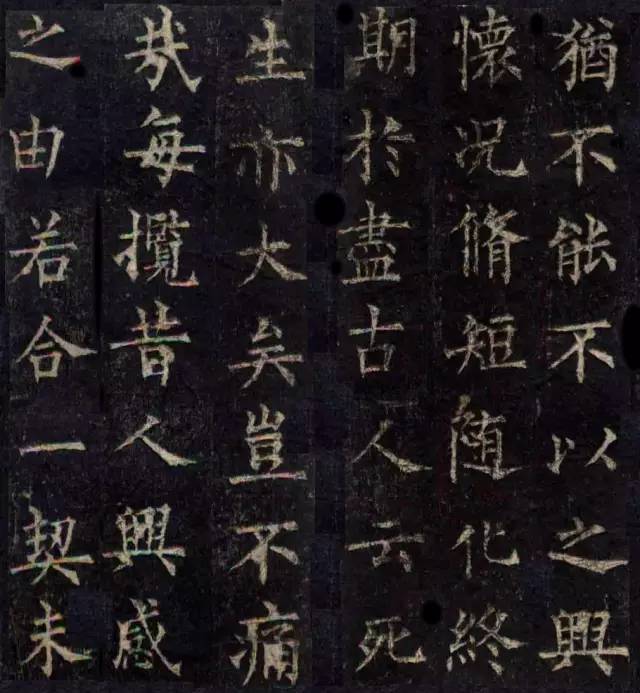 猶不能不以之興
懐況脩短随化終
期於盡古人云死
生亦大矣豈不痛
哉每攬昔人興感
之由若合一契未